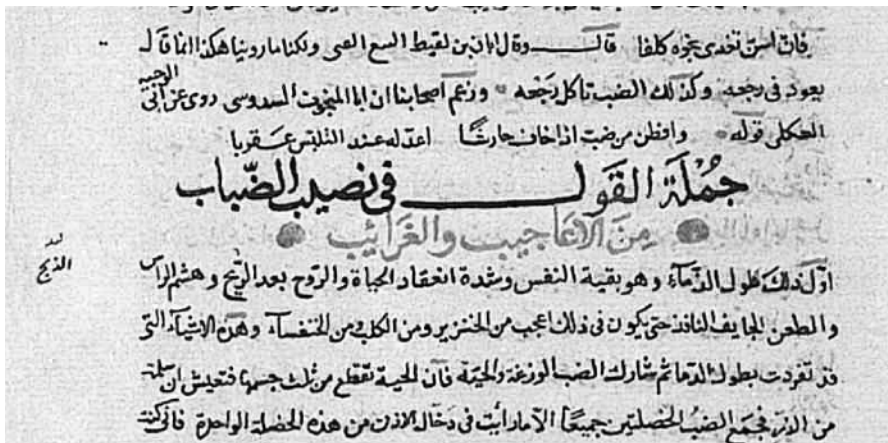 فان اسن تغدى بجوه كلفا قالــــ وقال ابان بن لقيط السبع العى ولكنا ما روينا هكذا انما قال
يعود فى رجعه وكذلك الضب تاكل رجعه وزعم اصحابنا ان ابا المنجوف السدوسى روى عن ابى الوجيه
العكلى قوله وافطن من ضب اذا خاف حارشا اعد له عند التلبس عقربا
جُمْلَة القَولــــ فى نصيب الضّباب
مِنَ الاعَاجيب والغَرائِب
اوّل ذلك طول الذماء وهو بقية النفس وشدة انعقاد الحياة والروح بعد الريح وهشم الراس
لعد الذبح
والطعن الجايف النافذ حتى يكون فى ذلك اعجب من الخنزير ومن الكلب ومن الخنفساء وهذه الاشياء التى
قد تفردت بطول الذما ثم شارك الضب الوزغة والحية فان الحية تقطع من ثلث جسمها فتعيش ان سلمت
من الذر فجمع الضب الخصلتين جميعا الا ما رايت فى دخال الاذن من هذه الخصلة الواحدة فانى كنت